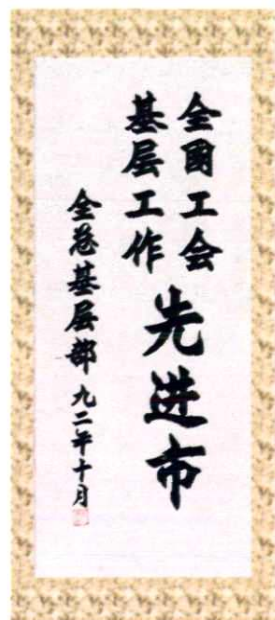 全國工会
基层工作
先进市
全总基层部 九二年十月